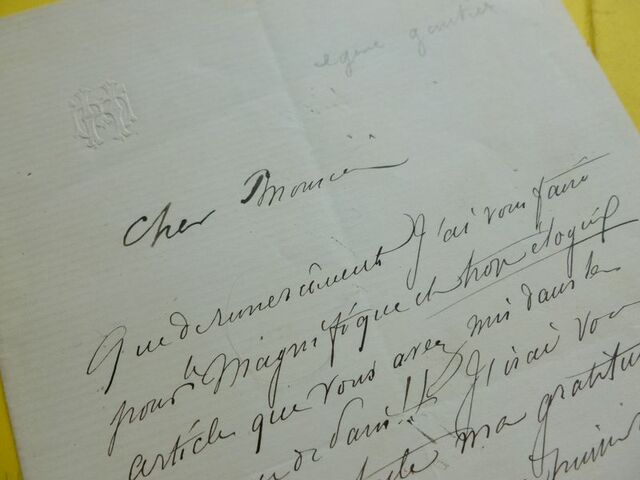 gautier
Cher Monsieur
Que de remerciements J'ai vous faire
pour le Magnifique et trop élogieux
article que vous avez mis dans le
de Paris!! J'irai vous
ma gratitu